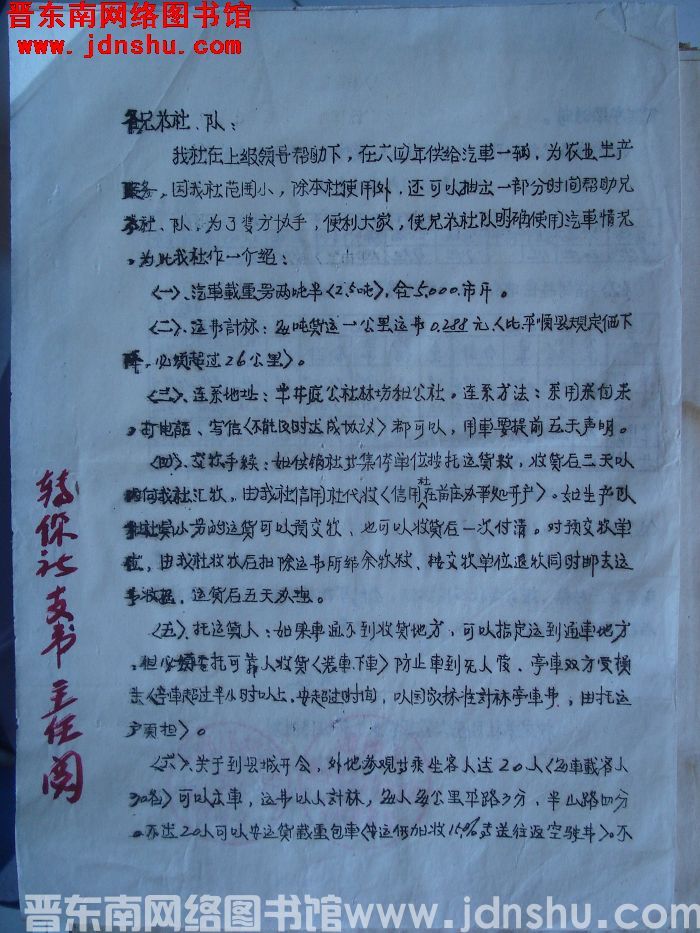 晋东南网络图书馆
www.jdnshu.com
各兄弟社、队：
我社在上级领导帮助下，在六四年供给汽車一辆，为农业生产
服务，因我社范围小，除本社使用外，还可以抽出一部分时间帮助兄
弟社、队，为了双方协手，便利大家，使兄弟社队明确使用汽車情况
，为此我社作一介绍：
〈一〉、汽車载重为两吨半〈2.5吨〉，合5,000.市斤。
〈二〉、运费計标：每吨货运一公里运费0.288元〈比平顺县规定価下
降，必须超过26公里〉。
〈三〉、连系地址：半井底公社林场和公社。连系方法：采用来包来
、打电話、写信〈不能及时达成协议〉都可以，用車要提前五天声明。
〈四〉、交款手续：如供销社共集体单位按托运货款，收货后三天以
内向我社汇款，由我社信用社代收〈信用社在前庄办事处开户〉。如生产队
和社員小劳的运货可以预交款、也可以收货后一次付清。对预交款单
位，由我社收款后扣除运费所结余款，按交款单位退款同时邮去运
费收据，运货后五天办理。
〈五〉、托运货人：如果車通不到收货地方，可以指定送到通車地方
，但必须委托可靠人收货〈装車、下車〉防止車到无人管、停車双方受损
失〈停車超过半小时以上，按超过时间，以国家标准計标停車费，由托运
户负担〉。
〈六〉、关于到县城开会，外地参观共乘坐客人达20人〈每車載客人
30名〉可以出車，运费以人計标，每人每公里平路3分，半山路四分
。不达20人可以按运货載重包車〈按运価加收15%卖送往返空驶费〉。不
转保社支书主任阅
晋东南网络图书馆www.jdnshu.com